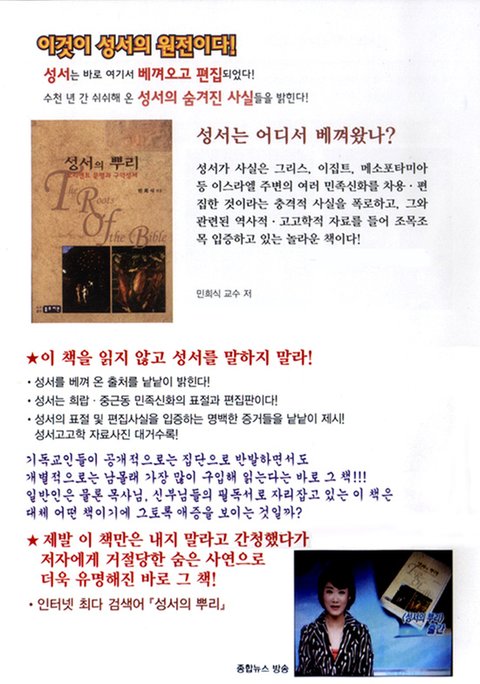 이것이 성서의 원전이다!
성서는 바로 여기서 베껴오고 편집되었다!
수천 년 간 쉬쉬해 온 성서의 숨겨진 사실들을 밝힌다!
성서는 어디서 베껴왔나?
성서가 사실은 그리스, 이집트, 메소포타미아
등 이스라엘 주변의 여러 민족신화를 차용·편
집한 것이라는 충격적 사실을 폭로하고, 그와
관련된 역사적·고고학적 자료를 들어 조목조
목 입증하고 있는 놀라운 책이다!
민희식 교수 저
성서의 뿌리
오리엔트 문명과 구약성서
민희식
The Roots
Of
the Bible
★이 책을 읽지 않고 성서를 말하지 말라!
· 성서를 베껴 온 출처를 낱낱이 밝힌다!
· 성서는 희랍·중근동 민족신화의 표절과 편집판이다!
· 성서의 표절 및 편집사실을 입증하는 명백한 증거들을 낱낱이 제시!
성서고고학 자료사진 대거수록!
기독교인들이 공개적으로는 집단으로 반발하면서도
개별적으로는 남몰래 가장 많이 구입해 읽는다는 바로 그 책!!!
일반인은 물론 목사님, 신부님들의 필독서로 자리잡고 있는 이 책은
대체 어떤 책이기에 그토록 애증을 보이는 것일까?
★ 제발 이 책만은 내지 말라고 간청했다가
저자에게 거절당한 숨은 사연으로
더욱 유명해진 바로 그 책!
· 인터넷 최다 검색어 『성서의 뿌리』
《성서의 뿌리》
출간
종합뉴스 방송